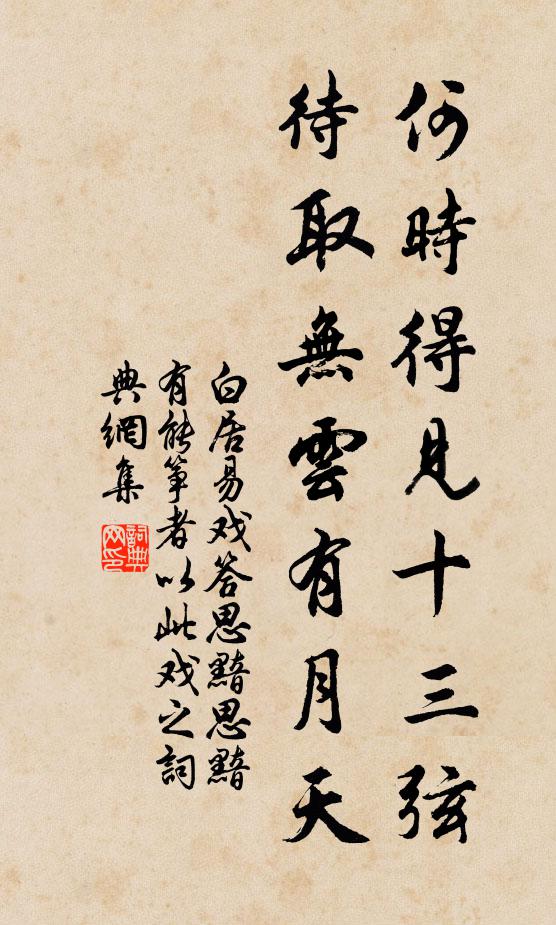 何時得見十三弦
待取無雲有月天
白居易戏答思黯思黯
有能筝者以此戏之詞
典網集
詞典网印